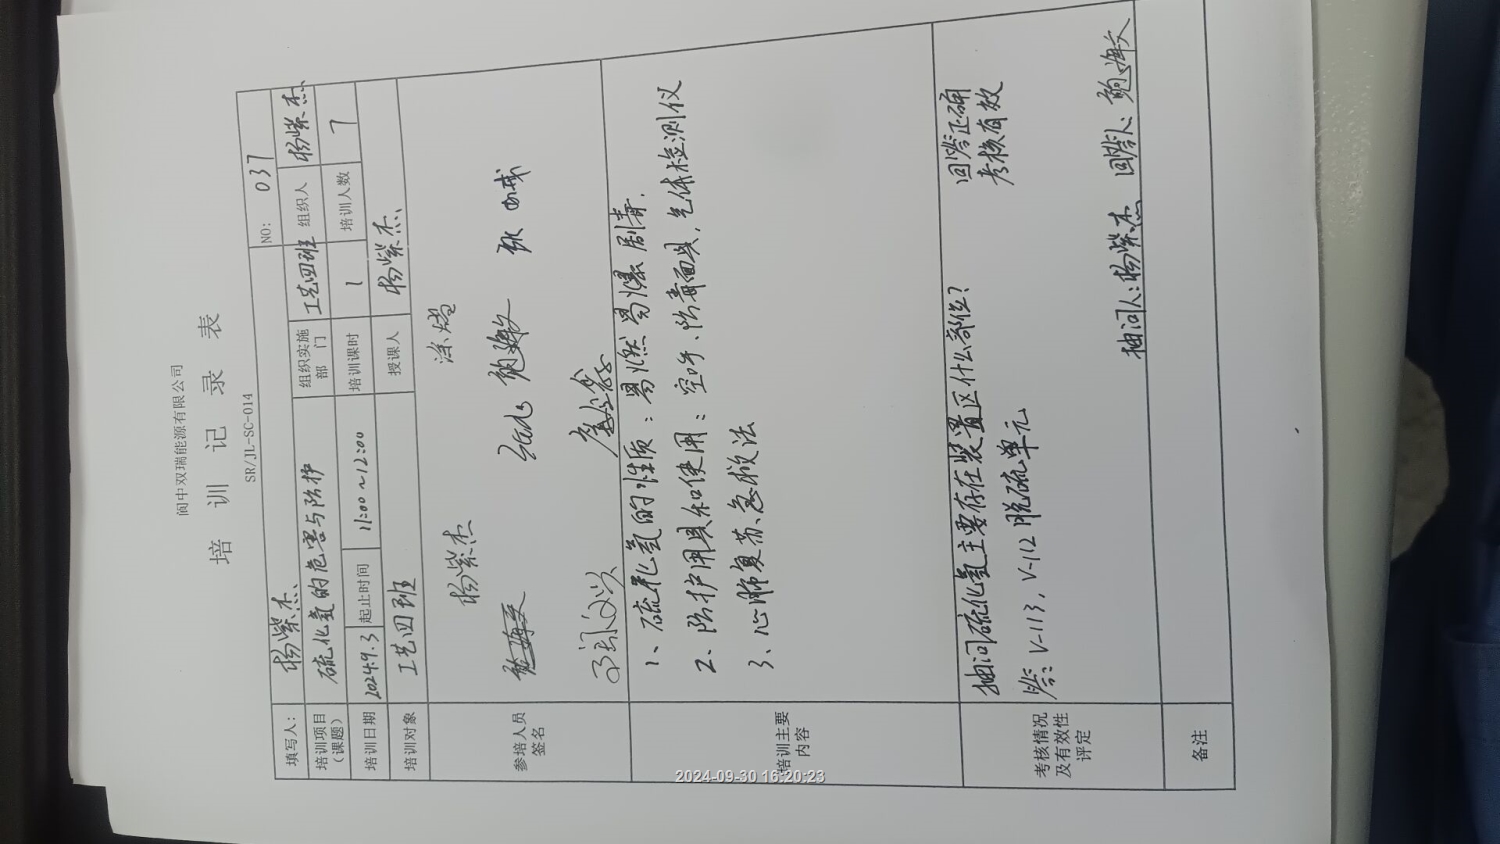 阆中双瑞能源有限公司
培 训 记 录 表
SR/JL-SC-014
NO: 037
填写人: 杨紫杰
培训项目（课题） 硫化氢的危害与防护 组织实施部门 工艺四班 组织人 杨紫杰
培训日期 2024.9.3 起止时间 11:00~12:00 培训课时 1 培训人数 7
培训对象 工艺四班 授课人 杨紫杰
参培人员签名
杨紫杰 涂燈
1、硫化氢的性质：易燃易爆剧毒.
2、防护用具和使用：空呼、防毒面具，气体检测仪
3、心肺复苏急救法
培训主要内容
抽问硫化氢主要存在装置区什么部位? 回答正确
答: V-113, V-112 脱硫单元 考核有效
抽问人: 杨紫杰 回答人: 鲍海文
考核情况及有效性评定
备注
2024-09-30 16:20:23